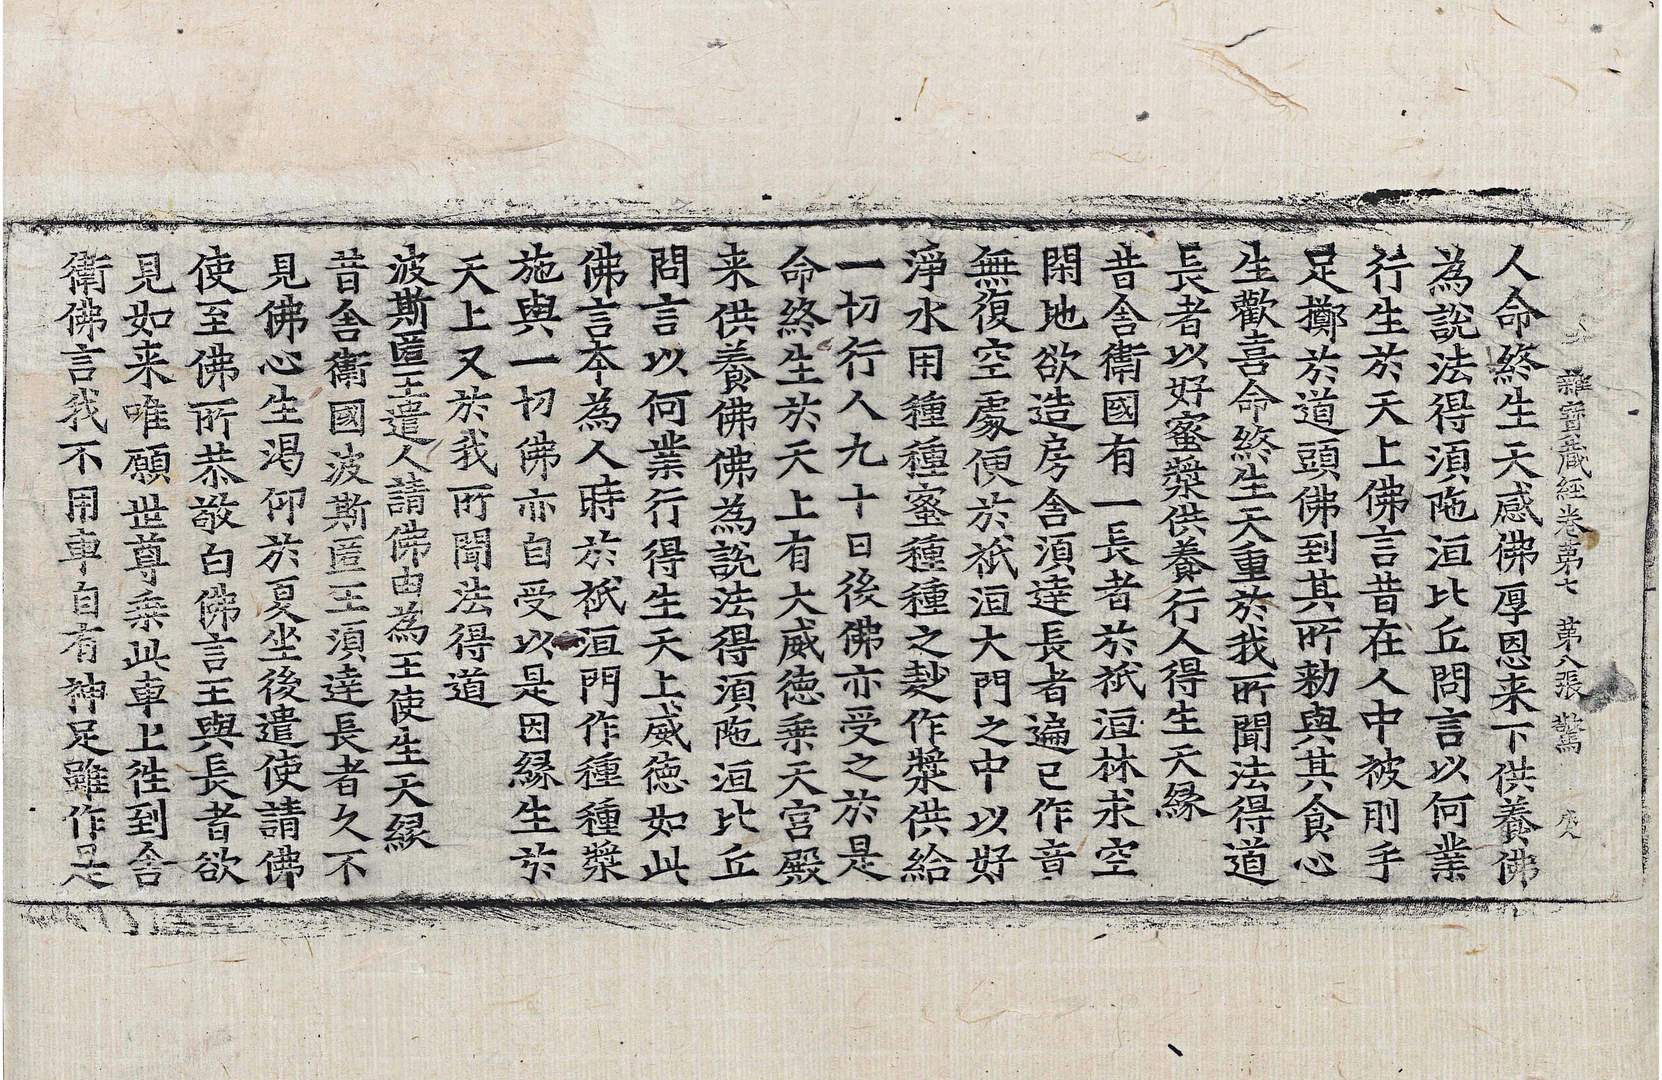 雜寶藏經卷第七　第八張　驚
人命終生天感佛厚恩来下供養佛
為說法得湏陁洹比丘問言以何業
行生於天上佛言昔在人中被刖手
足擲於道頭佛到其所勑與其食心
生歡喜命終生天重於我所聞法得道
長者以好蜜漿供養行人得生天縁
昔舎衛國有一長者於祇洹林求空
閑地欲造房舎湏達長者遍已作音
無復空處便於祇洹大門之中以好
淨水用種種蜜種種之麨作漿供給
一切行人九十日後佛亦受之於是
命終生於天上有大威徳乗天宮殿
来供養佛佛為說法得湏陁洹比丘
問言以何業行得生天上威徳如此
佛言本為人時於祇洹門作種種漿
施與一切佛亦自受以是因縁生於
天上又於我所聞法得道
波斯匿王遣人請佛由為王使生天縁
昔舎衛國波斯匿王湏達長者久不
見佛心生渇仰於夏坐後遣使請佛
使至佛所恭敬白佛言王與長者欲
見如来唯願世尊乗此車上徃到舎
衛佛言我不用車自有神足雖作是